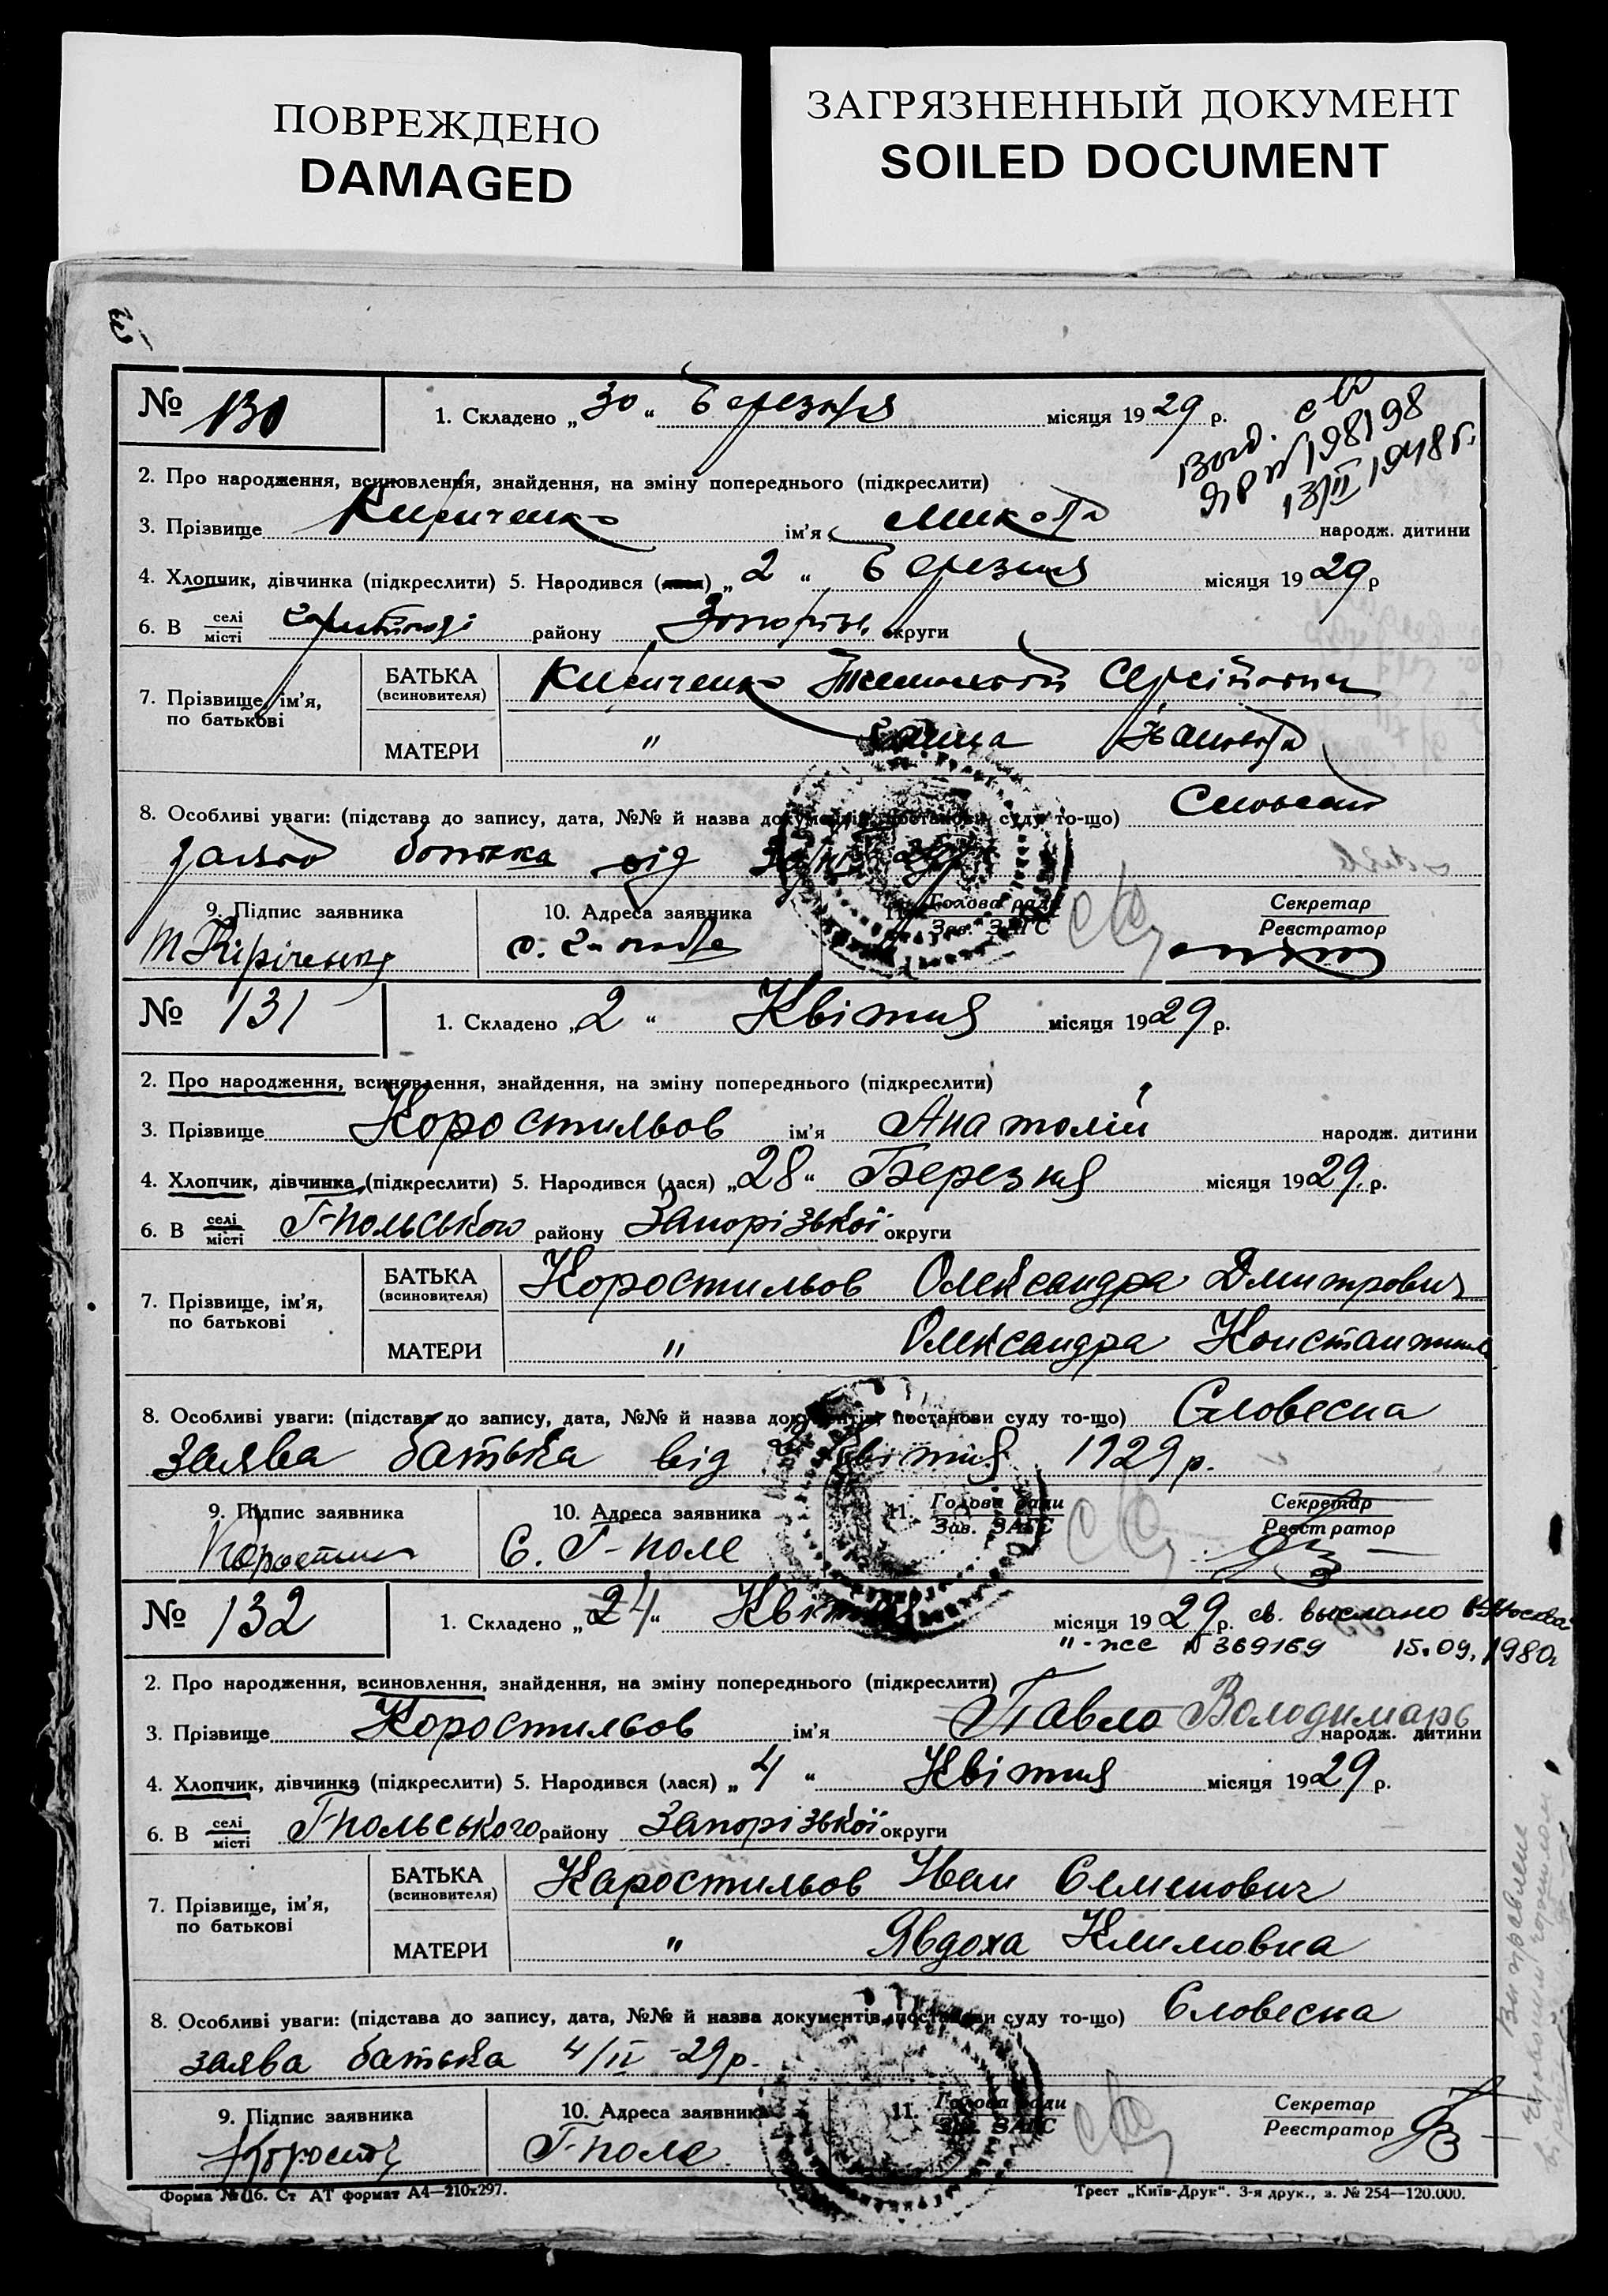 ПОВРЕЖДЕНО
DAMAGED
ЗАГРЯЗНЕННЫЙ ДОКУМЕНТ
SOILED DOCUMENT
№ 130
1. Складено „30“ Березня місяця 1929 р.
198198
13/II 1948 г.
2. Про народження, всиновлення, знайдення, на зміну попереднього (підкреслити)
3. Прізвище Кириченко ім'я Микола народж. дитини
4. Хлопчик, дівчинка (підкреслити) 5. Народився „2“ Березня місяця 1929 р
6. В селі місті району округи
7. Прізвище, ім'я, по батькові
БАТЬКА (всиновителя) Кириченко Сергійович
МАТЕРИ " Ганна Івановна
8. Особливі уваги: (підстава до запису, дата, №№ й назва документів, постанови суду то-що) Словесна
заява батька від
9. Підпис заявника 10. Адреса заявника 11. Голова ради Зав. ЗАГС Секретар Реєстратор
№ 131
1. Складено „2“ Квітня місяця 1929 р.
2. Про народження, всиновлення, знайдення, на зміну попереднього (підкреслити)
3. Прізвище Коростильов ім'я Анатолій народж. дитини
4. Хлопчик, дівчинка (підкреслити) 5. Народився (лася) „28“ Березня місяця 1929 р.
6. В селі місті Г-Польського району Запорізької округи
7. Прізвище, ім'я, по батькові
БАТЬКА (всиновителя) Коростильов Олександра Дмитрович
МАТЕРИ " Олександра
8. Особливі уваги: (підстава до запису, дата, №№ й назва документів, постанови суду то-що) Словесна
заява батька від Квітня 1929 р.
9. Підпис заявника 10. Адреса заявника 11. Голова ради Зав. ЗАГС Секретар Реєстратор
С. Г-поле
№ 132
1. Складено „24“ Квітня місяця 1929 р. св. выслано
"-же № 369169 15.09.1980г
2. Про народження, всиновлення, знайдення, на зміну попереднього (підкреслити)
3. Прізвище Коростильов ім'я Павло Володимарь народж. дитини
4. Хлопчик, дівчинка (підкреслити) 5. Народився (лася) „4“ Квітня місяця 1929 р.
6. В селі місті Г-польського району Запорізької округи
7. Прізвище, ім'я, по батькові
БАТЬКА (всиновителя) Каростильов Иван Семенович
МАТЕРИ " Явдоха Климовна
8. Особливі уваги: (підстава до запису, дата, №№ й назва документів, постанови суду то-що) Словесна
заява батька 4/IV-29 р.
9. Підпис заявника 10. Адреса заявника 11. Голова ради Зав. ЗАГС Секретар Реєстратор
Г-поле
Форма № 16. Ст АТ формат А4—210x297.
Трест „Київ-Друк“. 3-я друк., з. № 254—120.000.